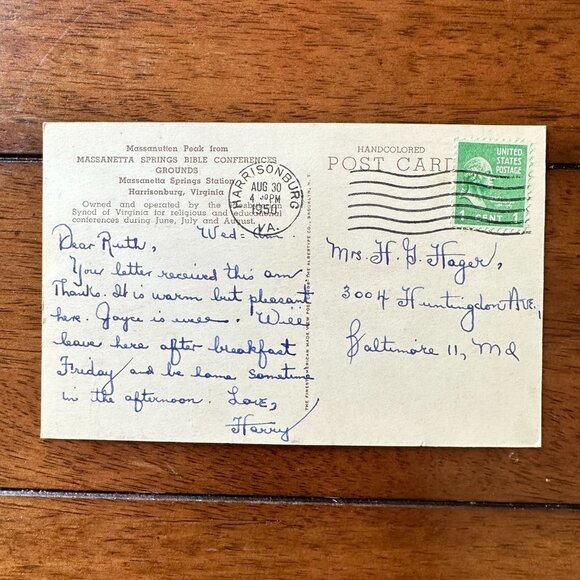 Massanutten Peak from
MASSANETTA SPRINGS BIBLE CONFERENCES
GROUNDS
Massanetta Springs Station
Harrisonburg, Virginia
Owned and operated by the Presbyterian
Synod of Virginia for religious and educational
conferences during June, July and August.
Dear Ruth,
Wed=
Your letter received this am
Thanks. It is warm but pleasant
here. Joyce is well. Will
leave here after breakfast
Friday and be home sometime
in the afternoon. Love,
Harry
HARRISONBURG
AUG 30
4 PM
1950
VA.
THE FINEST AMERICAN MADE VIEW POST CARDS THE ALBERTYPE CO., BROOKLYN, N.Y.
HANDCOLORED
POST CARD
UNITED
STATES
POSTAGE
1 CENT 1
Mrs. H. G. Hager,
3004 Huntingdon Ave.,
Baltimore 11, Md